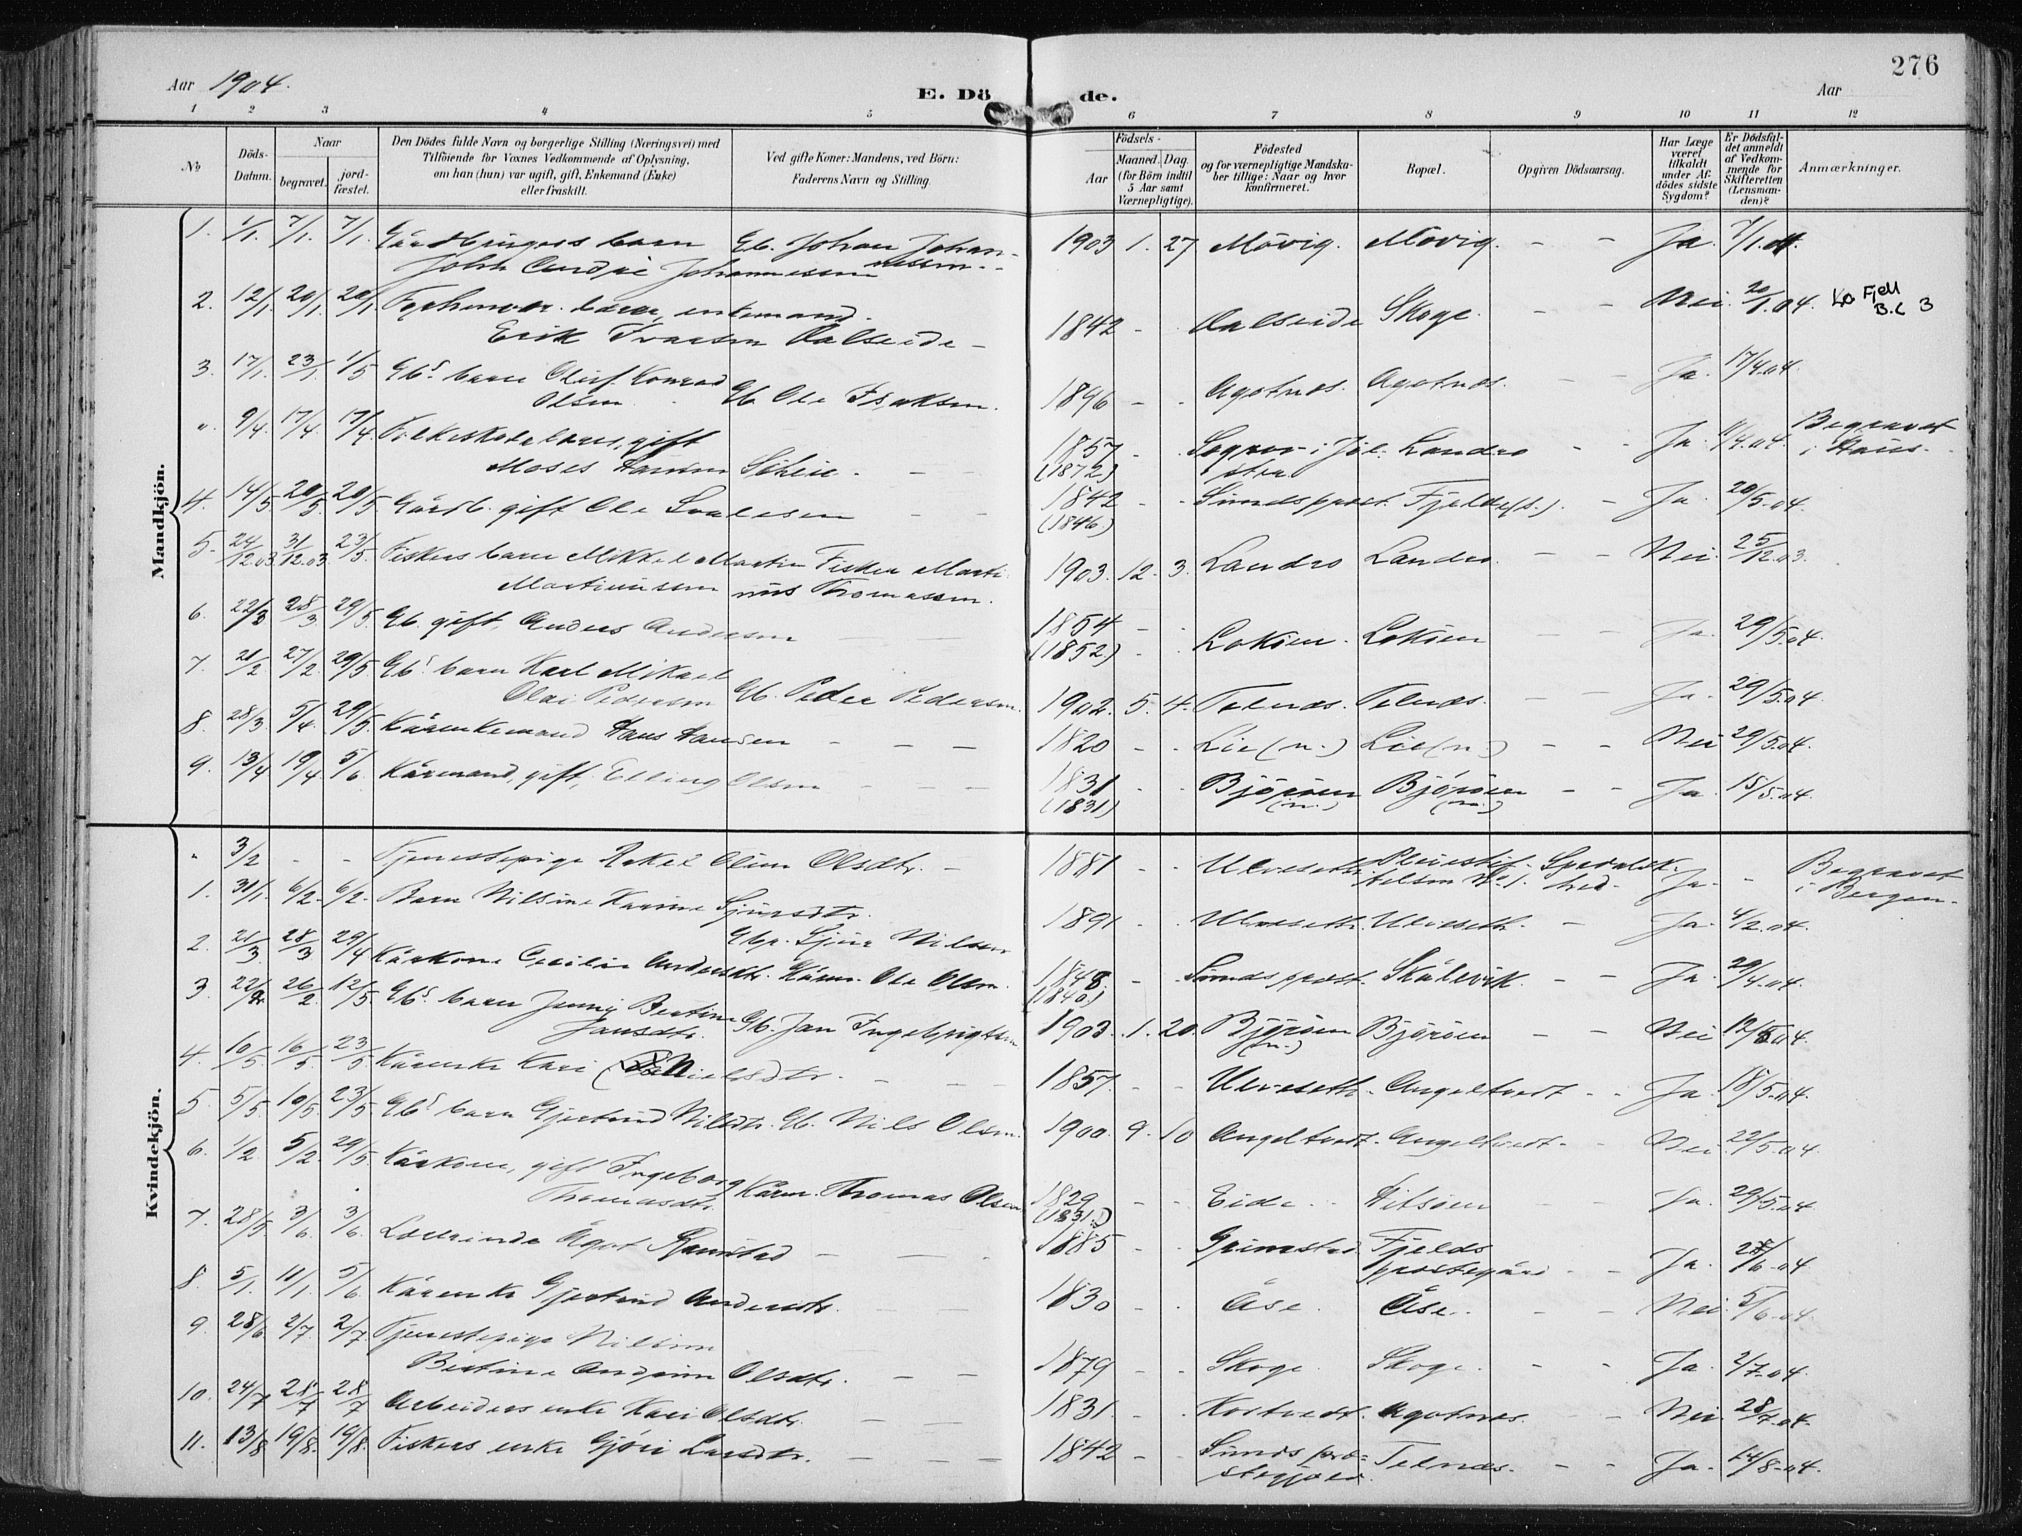 276
Aar 1904.
E. Döde.
Aar
1 2 3 4 5 6 7 8 9 10 11 12
No
Döds-Datum.
Naar
begravet.
jord-fæstet.
Den Dödes fulde Navn og borgerlige Stilling (Næringsvei) med
Tilföiende for Voxnes Vedkommende af Oplysning,
om han (hun) var ugift, gift, Enkemand (Enke)
eller fraskilt.
Ved gifte Koner: Mandens, ved Börn:
Faderens Navn og Stilling.
Födsels-
Aar
Maaned. Dag.
(for Börn indtil
5 Aar samt
Værnepligtige).
Födested
og for værnepligtige Mandska-
ber tillige: Naar og hvor
konfirmeret.
Bopæl.
Opgiven Dödsaarsag.
Har Læge
været
tilkaldt
under Af-
dödes sidste
Sygdom?
Er Dödsfal-
det anmeldt
af Vedkom-
mende for
Skifteretten
(Lensman-
den)?
Anmærkninger.
Mandkjön.
1. 1/1. 7/1. 7/1. barn Gb. Johan Johan-nessen. 1903 1. 27 Mövig. Mövig. - - Ja. 7/1.04.
Johannessen
2. 12/1 20/1 20/1 enkemand. 1842 - - Aalseide Skoge. - Nei. 20/1.04. Fjell B.C 3
Erik Aalseide -
3. 17/1. 23/1. 1/5 Gbs barn Oluf Konrad Olsen Gb. Ole Isaksen. 1896 - - Agotnes. Agotnes. - - Ja. 17/4.04
" 9/4. 17/4. 17/4. gift 1857 (1872) - Jöl-stra Landro - Ja. Begravet i Haus.
Moses Hansen Skeie. - -
4. 14/5 20/5. 20/5 Gårdb. gift Ole - - 1842 (1846.) - - Sundsprest. - Ja. 20/5.04.
5. 24/12.03. 31/12.03. 23/5. Fiskers barn Mikkel Martin Martinussen Fisker Marti-nus Thomassen. 1903. 12. 3. Landro Landro. - - Nei. 25/12.03.
6. 22/3 28/3. 29/5. Gb. gift, Anders Andersen - - 1854 (1852) - - Loköen. Loköen - Ja. 29/5.04.
7. 21/2 27/2. 29/5 Gbs barn Karl Mikael Olai Pedersen Gb. Peder Pedersen. 1902. 5. 4. Telnæs. Telnæs. - - Ja. 29/5.04
8. 28/3 5/4. 29/5. Kårenkemand Hans Hansen - - - 1820 - - Lie (n.) Lie (n.) - - Nei 29/5.04.
9. 13/4 19/4. 5/6. Kårmand, gift, Elling Olsen - - - 1831 (1831) - - Björöen (n.) Björöen (n.) - - Ja. 15/5.04.
Kvindekjön.
" 3/2 - - Tjenestepige Rakel Oline Olsdtr. - 1881 - - Ulveseth Pleiestif-telsen No 1. Spedalsk-hed. Ja. - Begravet i Bergen.
1. 31/1 6/2. 6/2. Barn Nilsine Karine Sjursdtr. Gbr. Sjur Nilsen 1891 - - Ulveseth. Ulveseth. - Ja. 4/2.04.
2. 21/3 28/3 29/4 Kårkone Cecilie Andersdtr. Kårm. Ole Olsen. 1848. (1840) - Sundsprest. Skålevik. - - Ja. 29/4.04.
3. 26/2. 12/5. Gbs barn Jenny Bertine Jansdtr. Gb. Jan Ingebrigtsen 1903. 1. 20. Björöen (n.) Björöen - - Nei 12/5.04.
4. 10/5 16/5. 23/5 Kårenke Kari Nielsdtr. - - 1857. - - Ulveseth. Angeltvedt - - Ja. 18/5.04.
5. 5/5. 10/5. 23/5. Gbs barn Gjertrud Nilsdtr. Gb. Nils Olsen. 1900. 9. 10 Angeltvedt. Angeltvedt. - - Nei. 22/5.04.
6. 1/2. 5/2. 29/5. Kårkone, gift Ingeborg Thomasdtr. Kårm. Thomas Olsen 1829 (1831.) - - Eide. - Ja. 29/5.04
7. 28/5 3/6. 3/6. Lærerinde Ågot - - 1885 - - Grimstad Fjelds prestegård - - Ja. 04
8. 5/1. 11/1. 5/6. Kårenke Gjertrud Andersdtr. - - 1830 - - Åse. Åse. - - Nei. 5/6.04
9. 28/6 2/7. 2/7. Tjenestepige Nilsine
Bertine Andrine Olsdtr. - - 1879 - - Skoge. Skoge. - - Ja. 2/7.04.
10. 24/7 28/7 28/7 Arbeiders enke Kari Olsdtr. - - 1831. - - Kortvedt. Agotnes. - - Nei. 28/7.04.
11. 13/8 19/8. 19/8. Fiskers enke Gjöri Larsdtr. - - 1842 - - Sunds pre-stegjeld. Telnæs. - - Ja. 14/8.04.